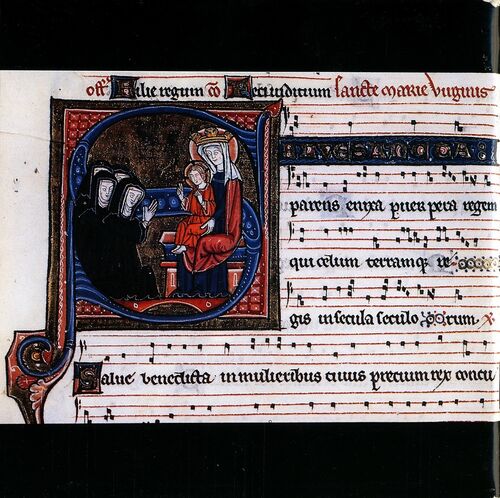 offm Filie regum co Adducuntur sancte marie virginis
SALVE SANCTA
parens enixa puer pera regem
qui celum terramq; re
gis in secula seculo rum. x
Salve benedicta in mulieribus cuius precium rex concu